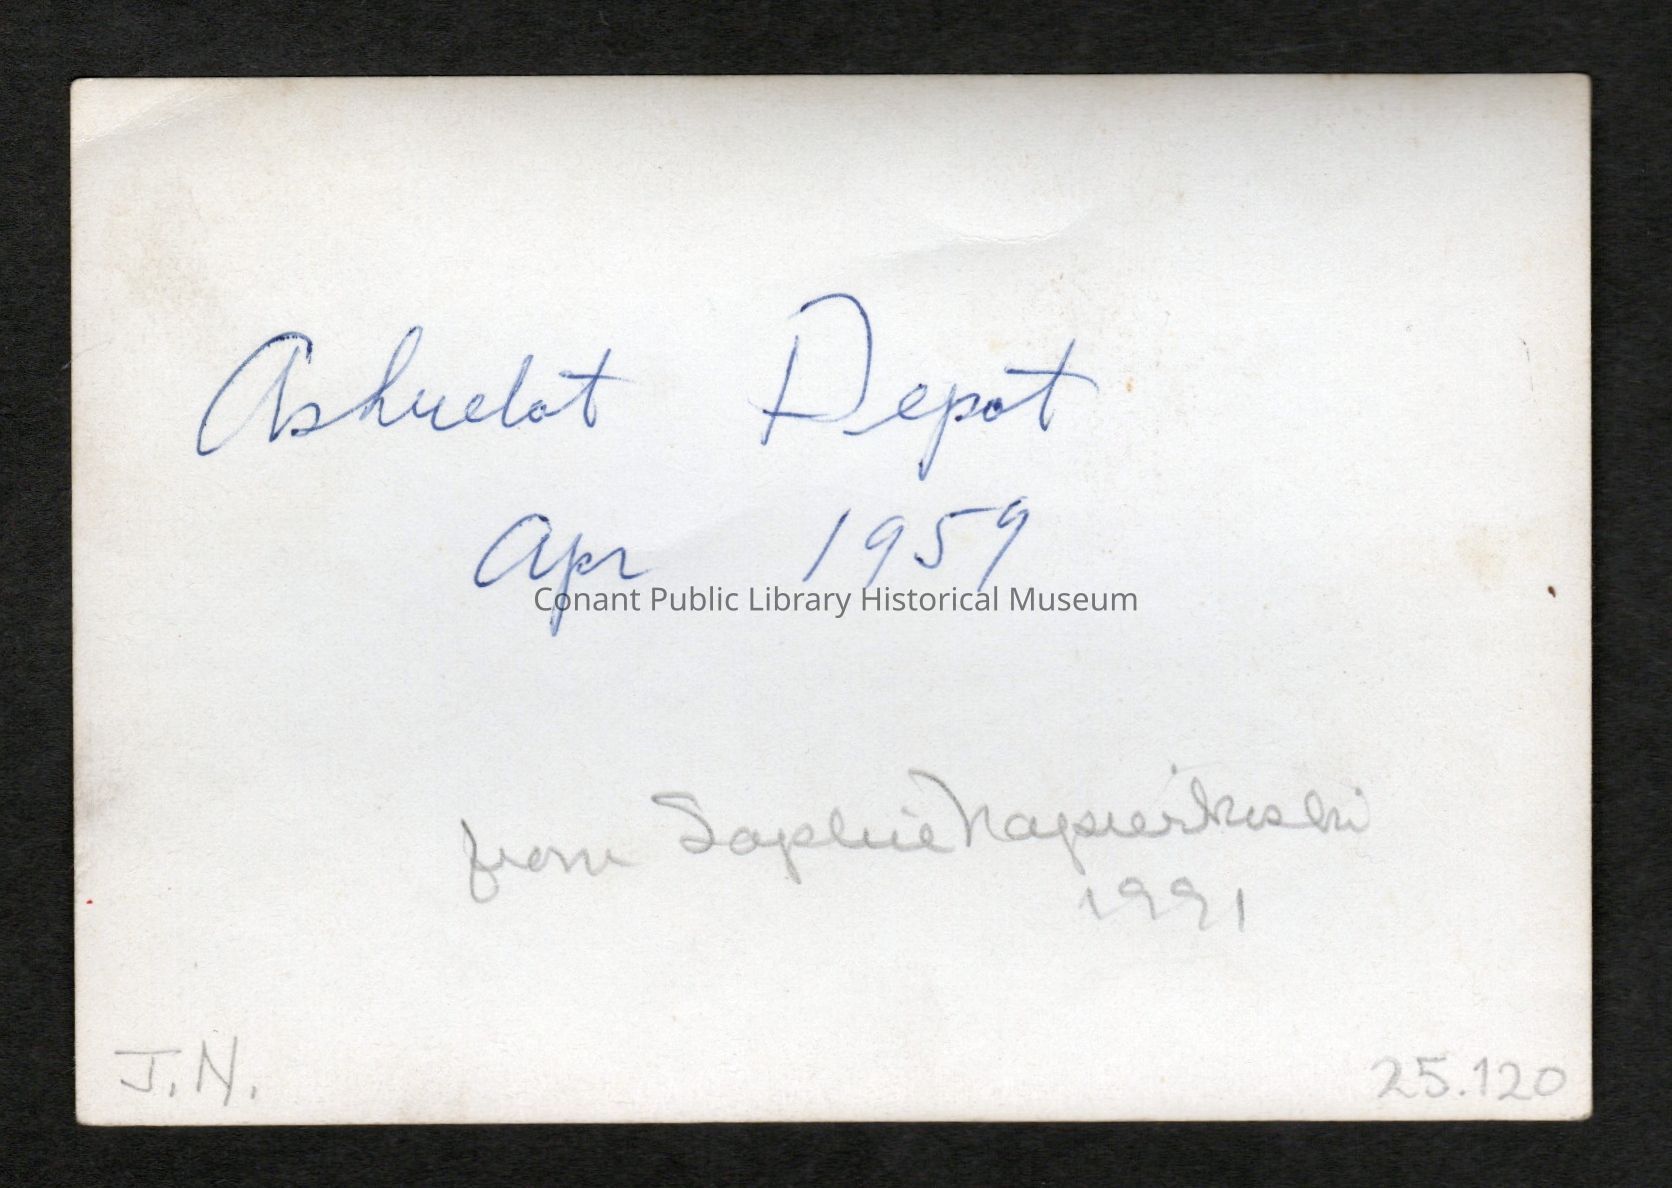 Ashuelot Depot
Apr 1959
Conant Public Library Historical Museum
from Sophie Napierkoski
1991
J.N.
25.120